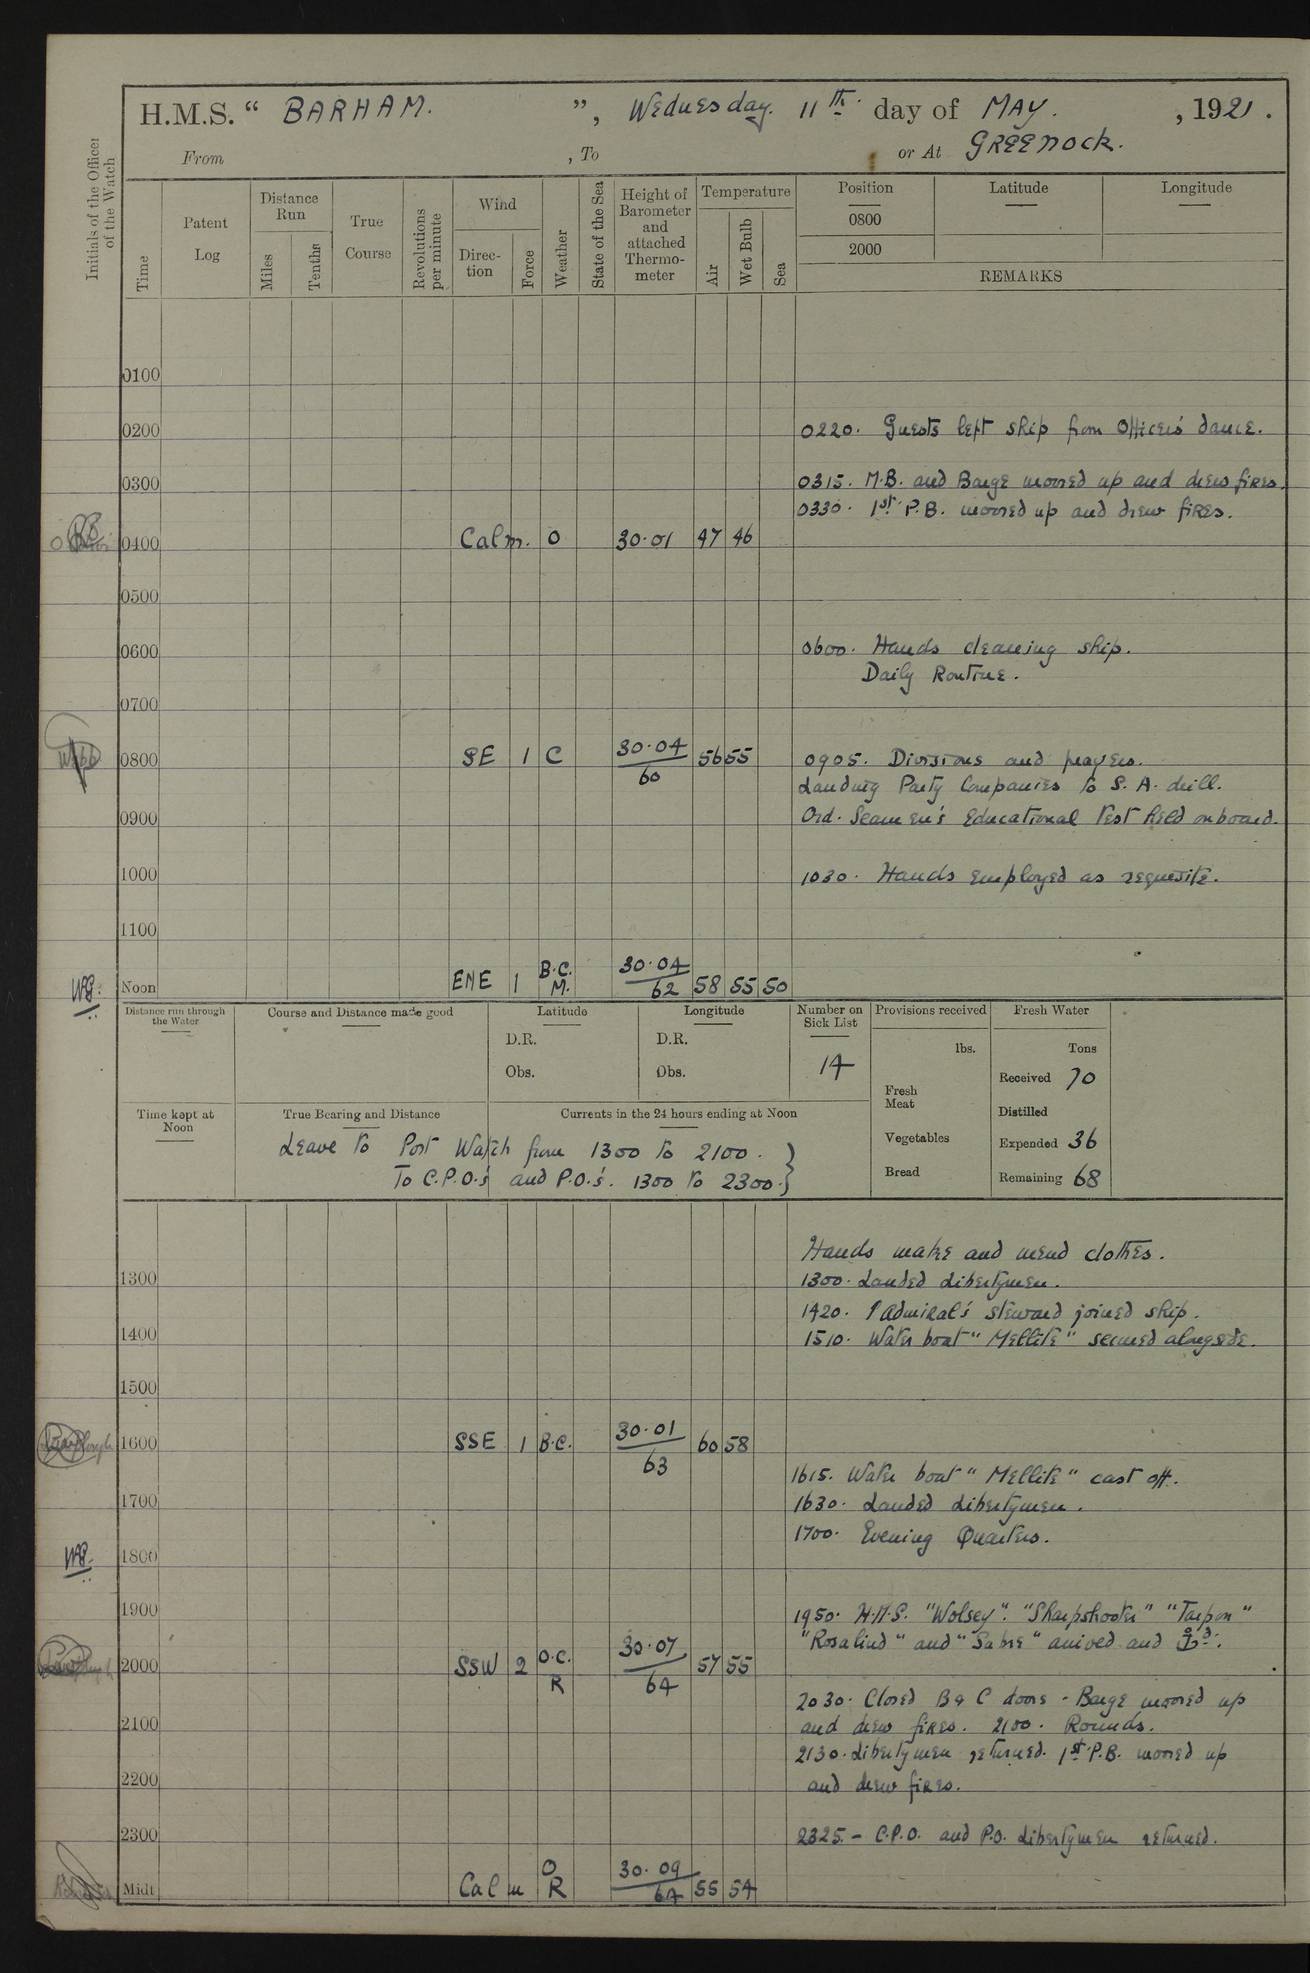 H.M.S. “ BARHAM. ”, Wednesday. 11th. day of MAY. , 1921.
From , To or At GREENOCK.
Initials of the Officer of the Watch
Time
Patent Log
Distance Run
Miles
Tenths
True Course
Revolutions per minute
Wind
Direc-tion
Force
Weather
State of the Sea
Height of Barometer and attached Thermo-meter
Temperature
Air
Wet Bulb
Sea
Position Latitude Longitude
0800
2000
REMARKS
0100
0200 0220. Guests left ship from Officers' dance.
0300 0315. M.B. and Barge moored up and drew fires.
0330. 1st P.B. moored up and drew fires.
0400 Calm. O 30.01 47 46
0500
0600 0600. Hands cleaning ship.
Daily Routine.
0700
Webb 0800 SE 1 C 30.04 56 55 0905. Divisions and prayers.
60
Landing Party Companies to S. A. drill.
0900 Ord. Seamen's Educational Test held onboard.
1000 1030. Hands employed as requisite.
1100
Noon ENE 1 B.C. M. 30.04 58 55 50
62
Distance run through the Water
Course and Distance made good
Latitude
D.R.
Obs.
Longitude
D.R.
Obs.
Number on Sick List
14
Provisions received
lbs.
Fresh Meat
Vegetables
Bread
Fresh Water
Tons
Received 70
Distilled
Expended 36
Remaining 68
Time kept at Noon
True Bearing and Distance
Currents in the 24 hours ending at Noon
Leave to Port Watch from 1300 to 2100.
To C.P.O.'s and P.O.'s. 1300 to 2300.
Hands make and mend clothes.
1300 1300. Landed Libertymen.
1420. 1 Admiral's steward joined ship.
1400 1510. Water boat "Mellite" secured alongside.
1500
1600 SSE 1 B.C. 30.01 60 58
63
1615. Water boat "Mellite" cast off.
1700 1630. Landed Libertymen.
1700. Evening Quarters.
1800
1900 1950. H.M.S. "Wolsey". "Sharpshooter" "Tarpon"
"Rosalind" and "Sabre" arrived and
2000 SSW 2 O.C. R 30.07 57 55
64
2030. Closed B & C doors - Barge moored up
2100 and drew fires. 2100. Rounds.
2130. Libertymen returned. 1st P.B. moored up
2200 and drew fires.
2300 2325. - C.P.O. and P.O. Libertymen returned.
Midt Calm O R 30.09 55 54
64